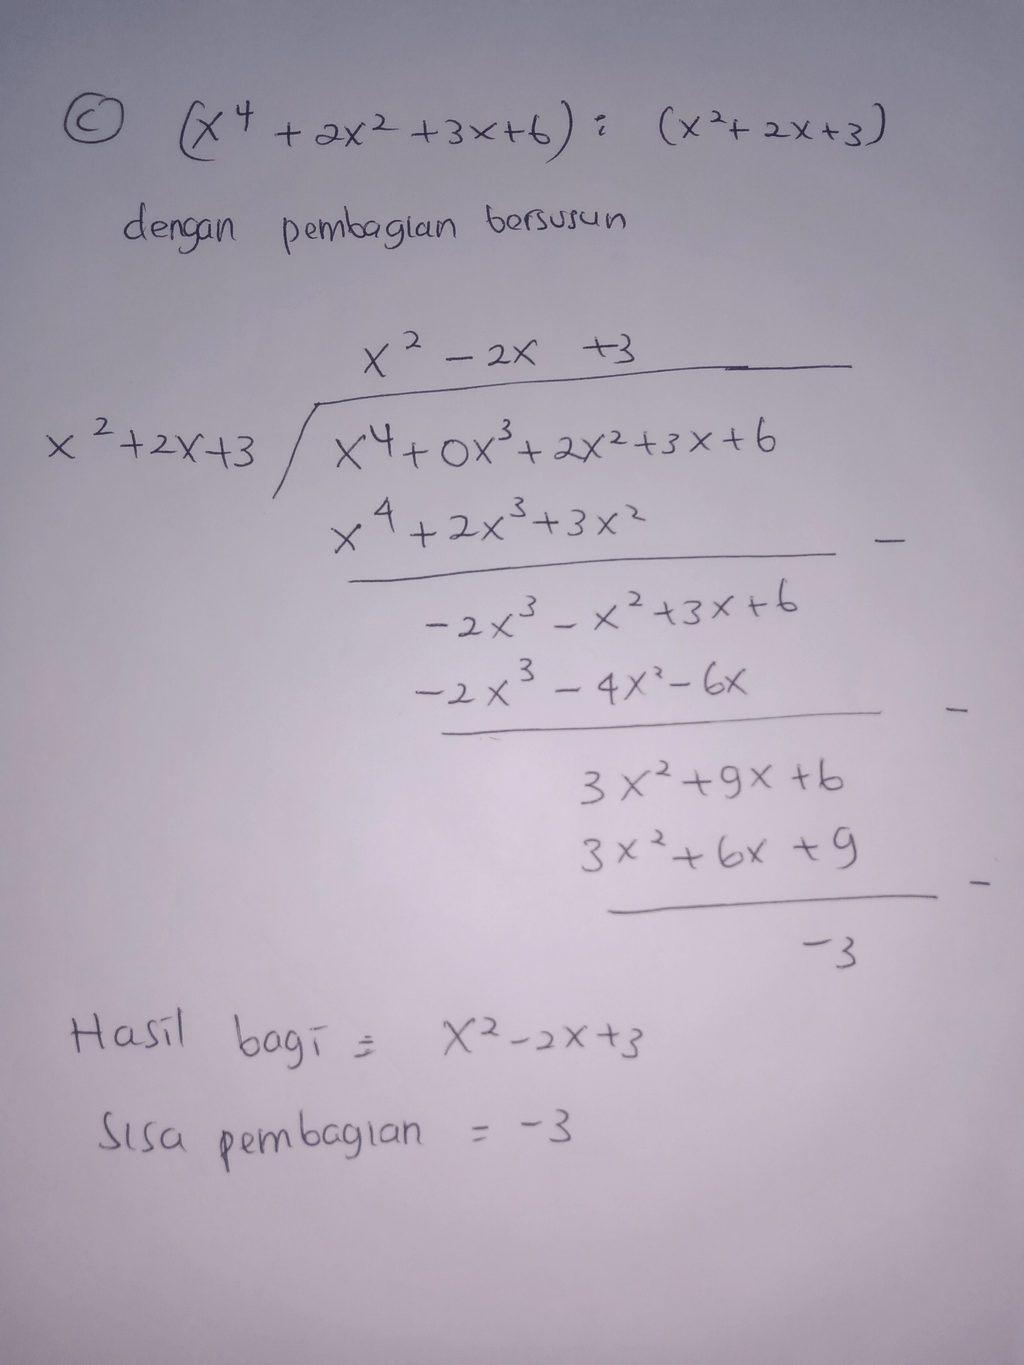 ⓒ (x⁴ + 2x² + 3x + 6) : (x² + 2x + 3)
dengan pembagian bersusun
x² - 2x + 3
x² + 2x + 3 / x⁴ + 0x³ + 2x² + 3x + 6
x⁴ + 2x³ + 3x² -
-2x³ - x² + 3x + 6
-2x³ - 4x² - 6x -
3x² + 9x + 6
3x² + 6x + 9 -
-3
Hasil bagi = x² - 2x + 3
Sisa pembagian = -3